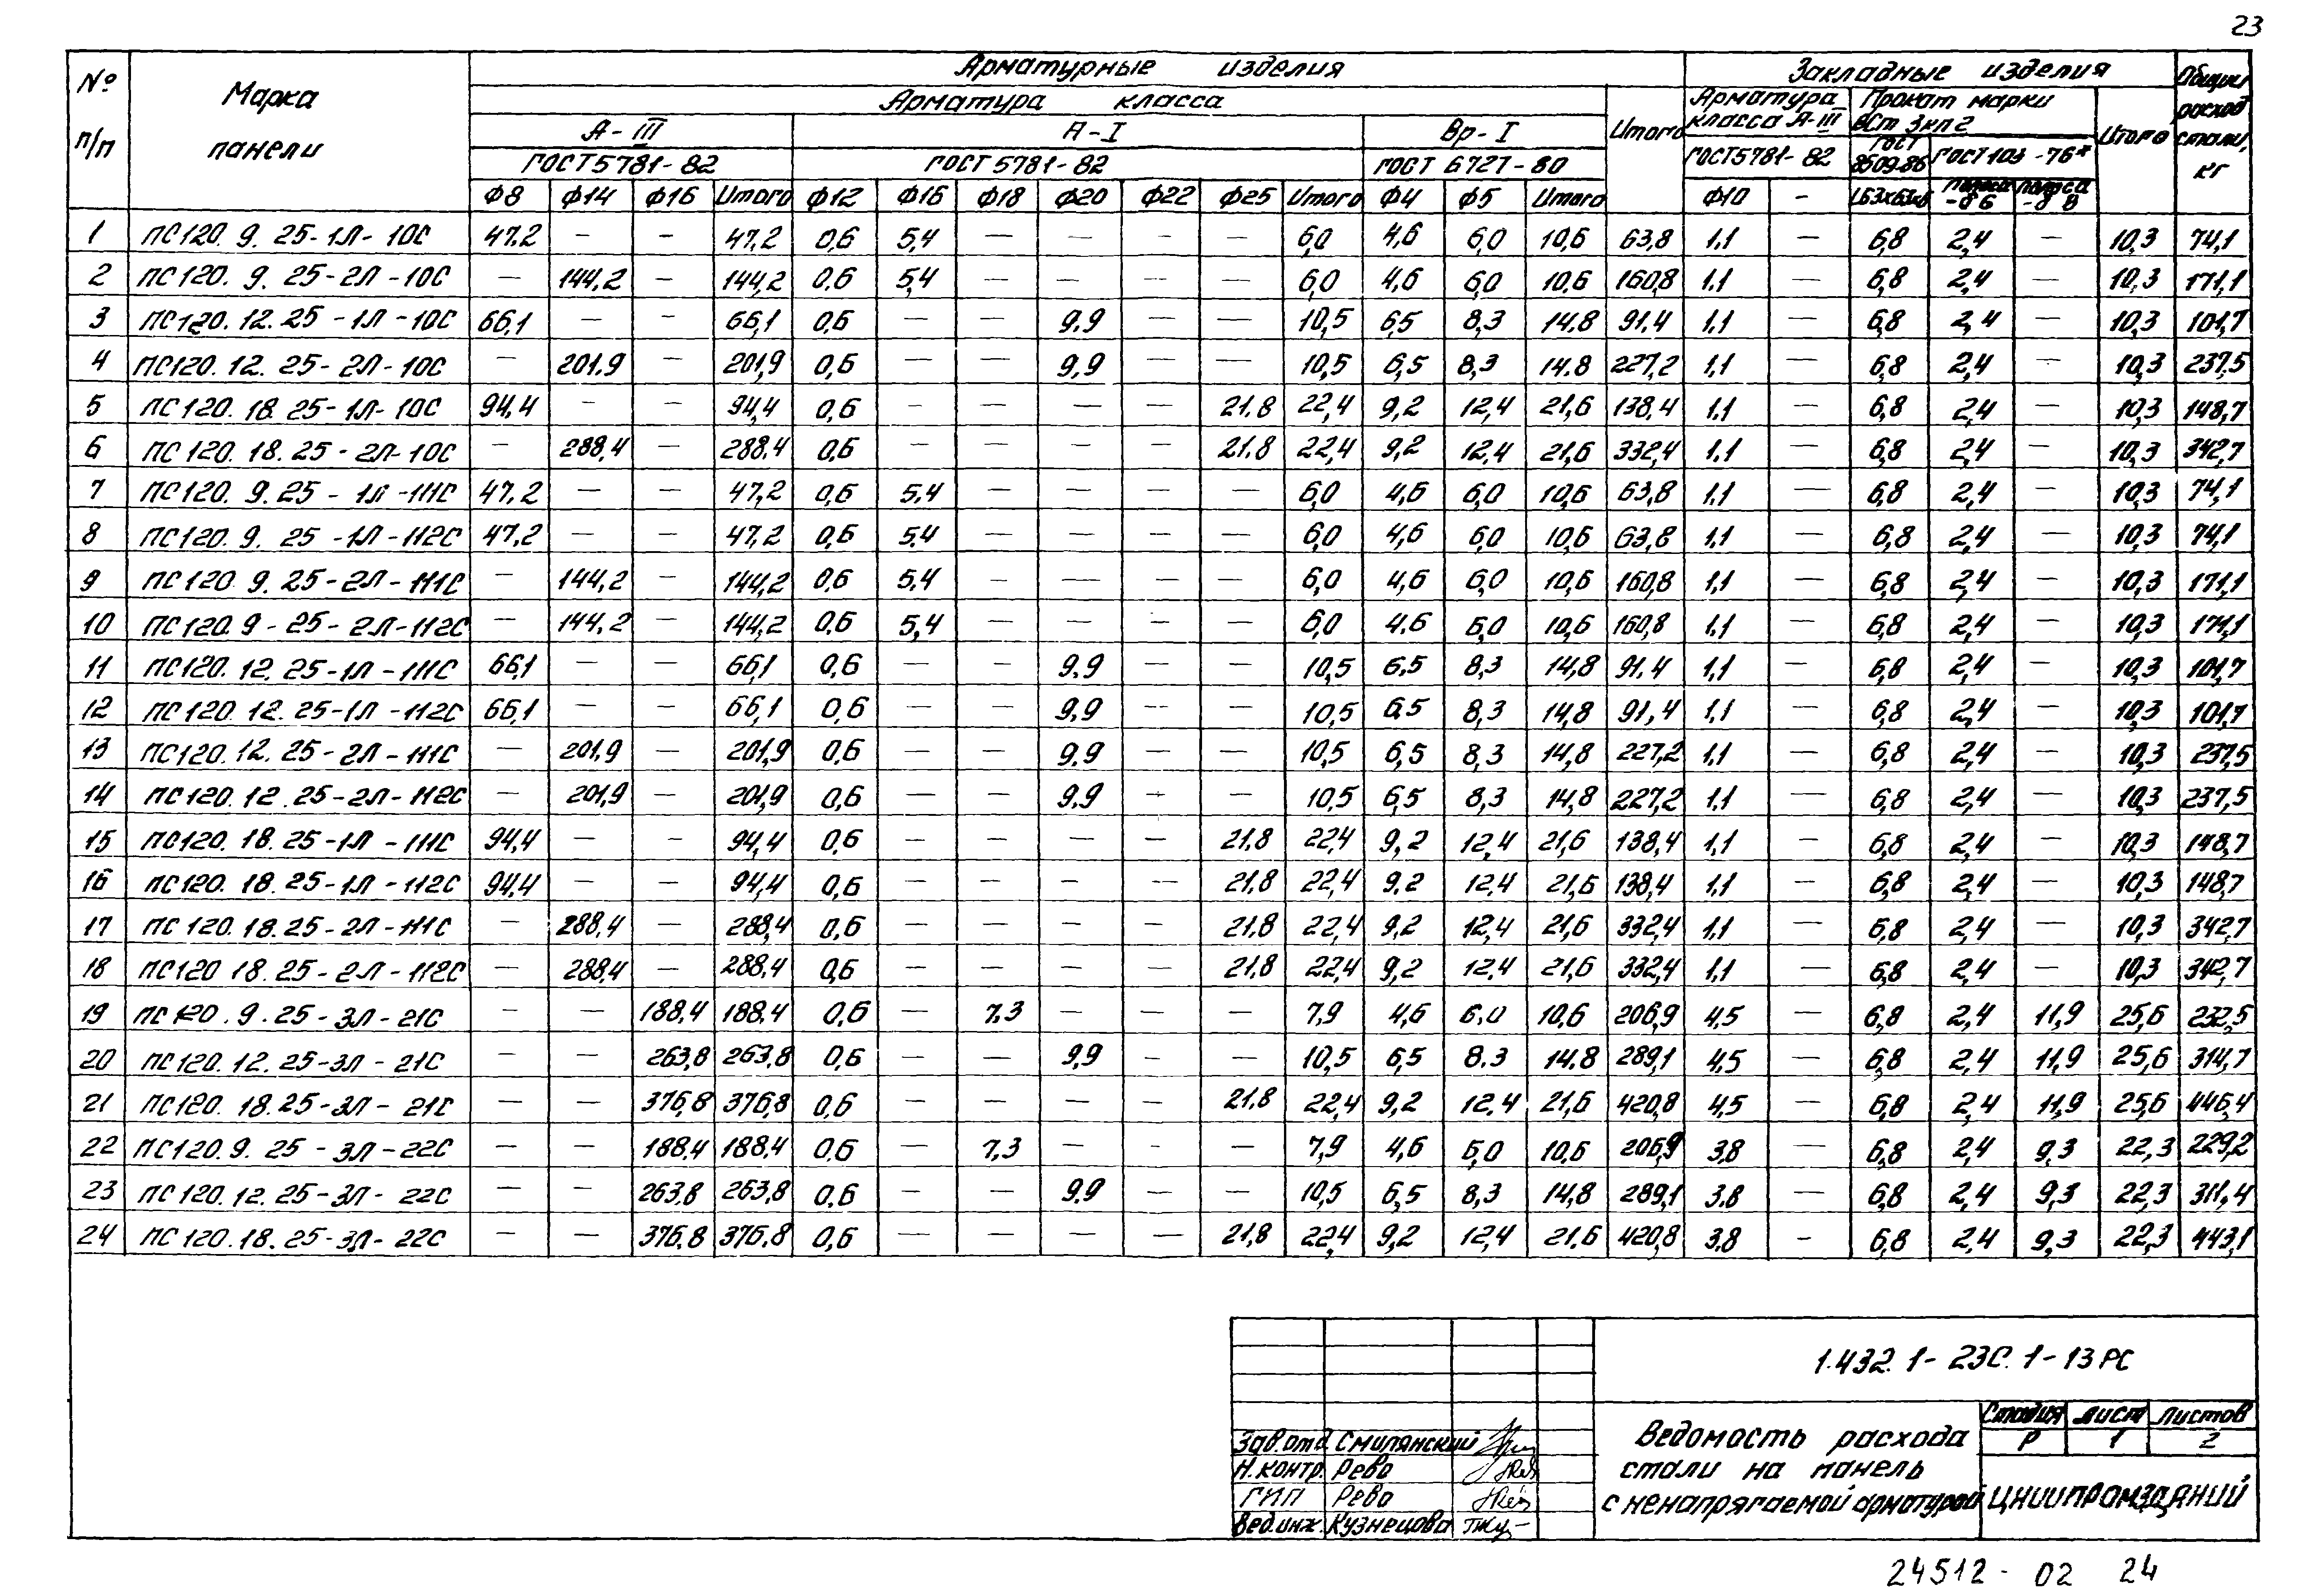 23
№ п/п Марка панели Арматурные изделия Закладные изделия Общий расход стали, кг
Арматура класса Итого Арматура класса А-III Прокат марки ВСт 3кп2 Итого
А-III А-I Вр-I
ГОСТ 5781-82 ГОСТ 5781-82 ГОСТ 6727-80 ГОСТ 5781-82 ГОСТ 8509-86 ГОСТ 103-76*
Ф8 Ф14 Ф16 Итого Ф12 Ф16 Ф18 Ф20 Ф22 Ф25 Итого Ф4 Ф5 Итого Ф10 - L63х63х6 полоса -8 6 полоса -8 8
1 ПС120.9.25-1Л-10С 47,2 — — 47,2 0,6 5,4 — — — — 6,0 4,6 6,0 10,6 63,8 1,1 — 6,8 2,4 — 10,3 74,1
2 ПС120.9.25-2Л-10С — 144,2 — 144,2 0,6 5,4 — — — — 6,0 4,6 6,0 10,6 160,8 1,1 — 6,8 2,4 — 10,3 171,1
3 ПС120.12.25-1Л-10С 66,1 — — 66,1 0,6 — — 9,9 — — 10,5 6,5 8,3 14,8 91,4 1,1 — 6,8 2,4 — 10,3 101,7
4 ПС120.12.25-2Л-10С — 201,9 — 201,9 0,6 — — 9,9 — — 10,5 6,5 8,3 14,8 227,2 1,1 — 6,8 2,4 — 10,3 237,5
5 ПС120.18.25-1Л-10С 94,4 — — 94,4 0,6 — — — — 21,8 22,4 9,2 12,4 21,6 138,4 1,1 — 6,8 2,4 — 10,3 148,7
6 ПС120.18.25-2Л-10С — 288,4 — 288,4 0,6 — — — — 21,8 22,4 9,2 12,4 21,6 332,4 1,1 — 6,8 2,4 — 10,3 342,7
7 ПС120.9.25-1Л-111С 47,2 — — 47,2 0,6 5,4 — — — — 6,0 4,6 6,0 10,6 63,8 1,1 — 6,8 2,4 — 10,3 74,1
8 ПС120.9.25-1Л-112С 47,2 — — 47,2 0,6 5,4 — — — — 6,0 4,6 6,0 10,6 63,8 1,1 — 6,8 2,4 — 10,3 74,1
9 ПС120.9.25-2Л-111С — 144,2 — 144,2 0,6 5,4 — — — — 6,0 4,6 6,0 10,6 160,8 1,1 — 6,8 2,4 — 10,3 171,1
10 ПС120.9-25-2Л-112С — 144,2 — 144,2 0,6 5,4 — — — — 6,0 4,6 6,0 10,6 160,8 1,1 — 6,8 2,4 — 10,3 171,1
11 ПС120.12.25-1Л-111С 66,1 — — 66,1 0,6 — — 9,9 — — 10,5 6,5 8,3 14,8 91,4 1,1 — 6,8 2,4 — 10,3 101,7
12 ПС120.12.25-1Л-112С 66,1 — — 66,1 0,6 — — 9,9 — — 10,5 6,5 8,3 14,8 91,4 1,1 — 6,8 2,4 — 10,3 101,7
13 ПС120.12.25-2Л-111С — 201,9 — 201,9 0,6 — — 9,9 — — 10,5 6,5 8,3 14,8 227,2 1,1 — 6,8 2,4 — 10,3 237,5
14 ПС120.12.25-2Л-112С — 201,9 — 201,9 0,6 — — 9,9 — — 10,5 6,5 8,3 14,8 227,2 1,1 — 6,8 2,4 — 10,3 237,5
15 ПС120.18.25-1Л-111С 94,4 — — 94,4 0,6 — — — — 21,8 22,4 9,2 12,4 21,6 138,4 1,1 — 6,8 2,4 — 10,3 148,7
16 ПС120.18.25-1Л-112С 94,4 — — 94,4 0,6 — — — — 21,8 22,4 9,2 12,4 21,6 138,4 1,1 — 6,8 2,4 — 10,3 148,7
17 ПС120.18.25-2Л-111С — 288,4 — 288,4 0,6 — — — — 21,8 22,4 9,2 12,4 21,6 332,4 1,1 — 6,8 2,4 — 10,3 342,7
18 ПС120 18.25-2Л-112С — 288,4 — 288,4 0,6 — — — — 21,8 22,4 9,2 12,4 21,6 332,4 1,1 — 6,8 2,4 — 10,3 342,7
19 ПС120.9.25-3Л-21С — — 188,4 188,4 0,6 — 7,3 — — — 7,9 4,6 6,0 10,6 206,9 4,5 — 6,8 2,4 11,9 25,6 232,5
20 ПС120.12.25-3Л-21С — — 263,8 263,8 0,6 — — 9,9 — — 10,5 6,5 8,3 14,8 289,1 4,5 — 6,8 2,4 11,9 25,6 314,7
21 ПС120.18.25-3Л-21С — — 376,8 376,8 0,6 — — — — 21,8 22,4 9,2 12,4 21,6 420,8 4,5 — 6,8 2,4 11,9 25,6 446,4
22 ПС120.9.25-3Л-22С — — 188,4 188,4 0,6 — 7,3 — — — 7,9 4,6 6,0 10,6 206,9 3,8 — 6,8 2,4 9,3 22,3 229,2
23 ПС120.12.25-3Л-22С — — 263,8 263,8 0,6 — — 9,9 — — 10,5 6,5 8,3 14,8 289,1 3,8 — 6,8 2,4 9,3 22,3 311,4
24 ПС120.18.25-3Л-22С — — 376,8 376,8 0,6 — — — — 21,8 22,4 9,2 12,4 21,6 420,8 3,8 — 6,8 2,4 9,3 22,3 443,1
1.432.1-23С.1-13РС
Зав.отд. Смилянский
Н.контр. Рево
ГИП Рево
Вед.инж. Кузнецова
Ведомость расхода
стали на панель
с ненапрягаемой арматурой
Стадия Лист Листов
Р 1 2
ЦНИИПРОМЗДАНИЙ
24512-02 24